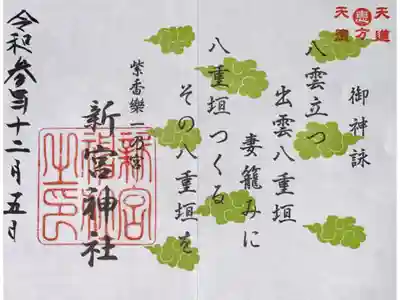 天道
恵方
御神詠
八雲立つ
出雲八重垣
妻籠みに
八重垣つくる
その八重垣を
紫香樂一乃宮
新宮神社
新宮
神社
之印
令和参年十二月五日